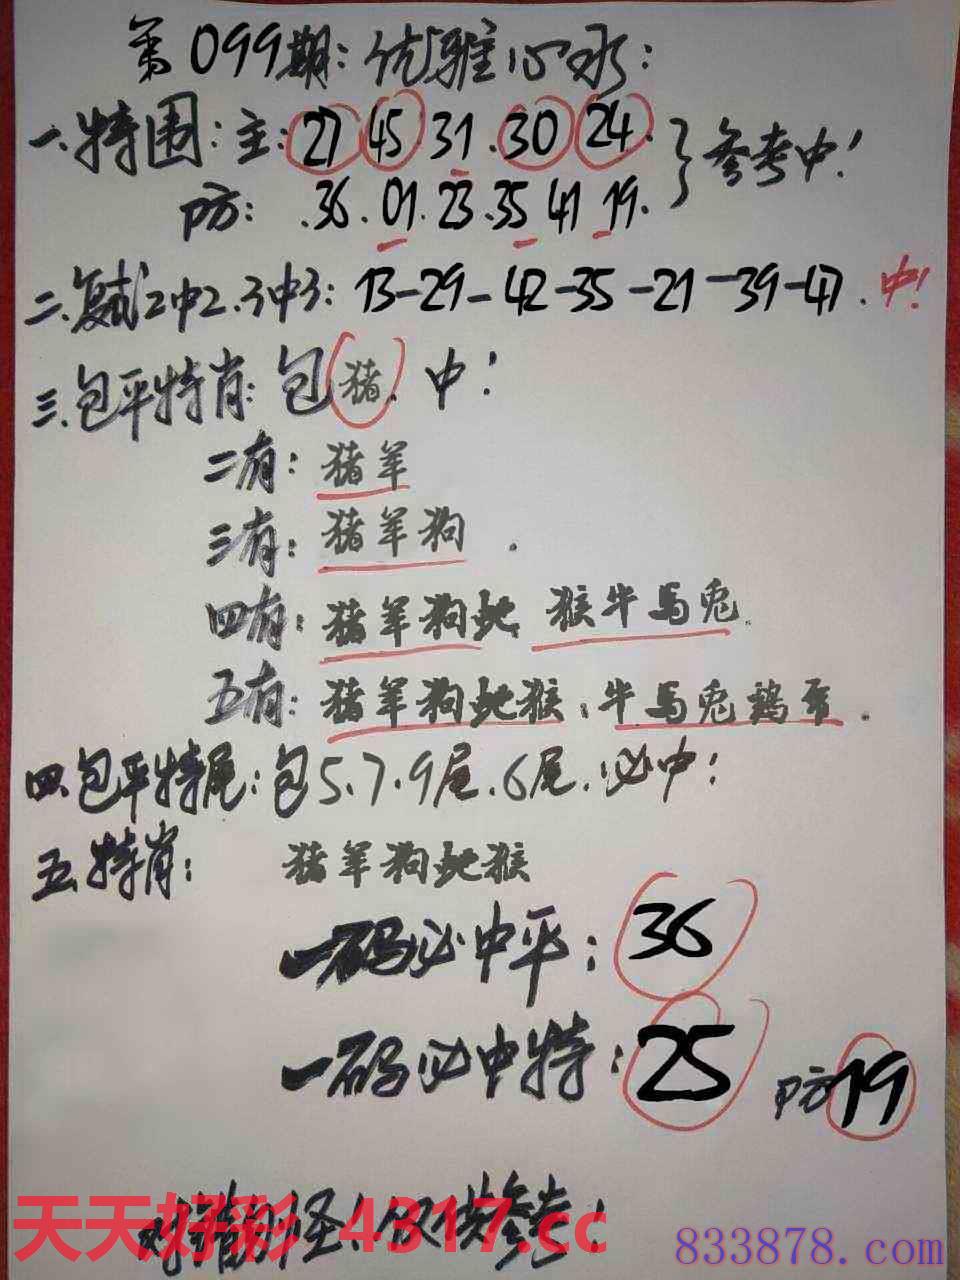 第099期：优雅心水：
一.特围：主：27 45.31.30 24. }参考中！
防：.36.01.23.35 41 19.
二.复试2中2.3中3：13-29-42-35-21-39-47.中！
三.包平特肖：包猪.中！
二有：猪羊
三有：猪羊狗.
四有：猪羊狗蛇 猴牛马兔.
五有：猪羊狗蛇猴；牛马兔鸡虎.
四.包平特尾：包5.7.9尾.6尾.必中！
五.特肖：猪羊狗蛇猴
一码必中平：36
一码必中特：25 防19
对错勿怪！仅供参考！
天天好彩 4317.cc
833878.com